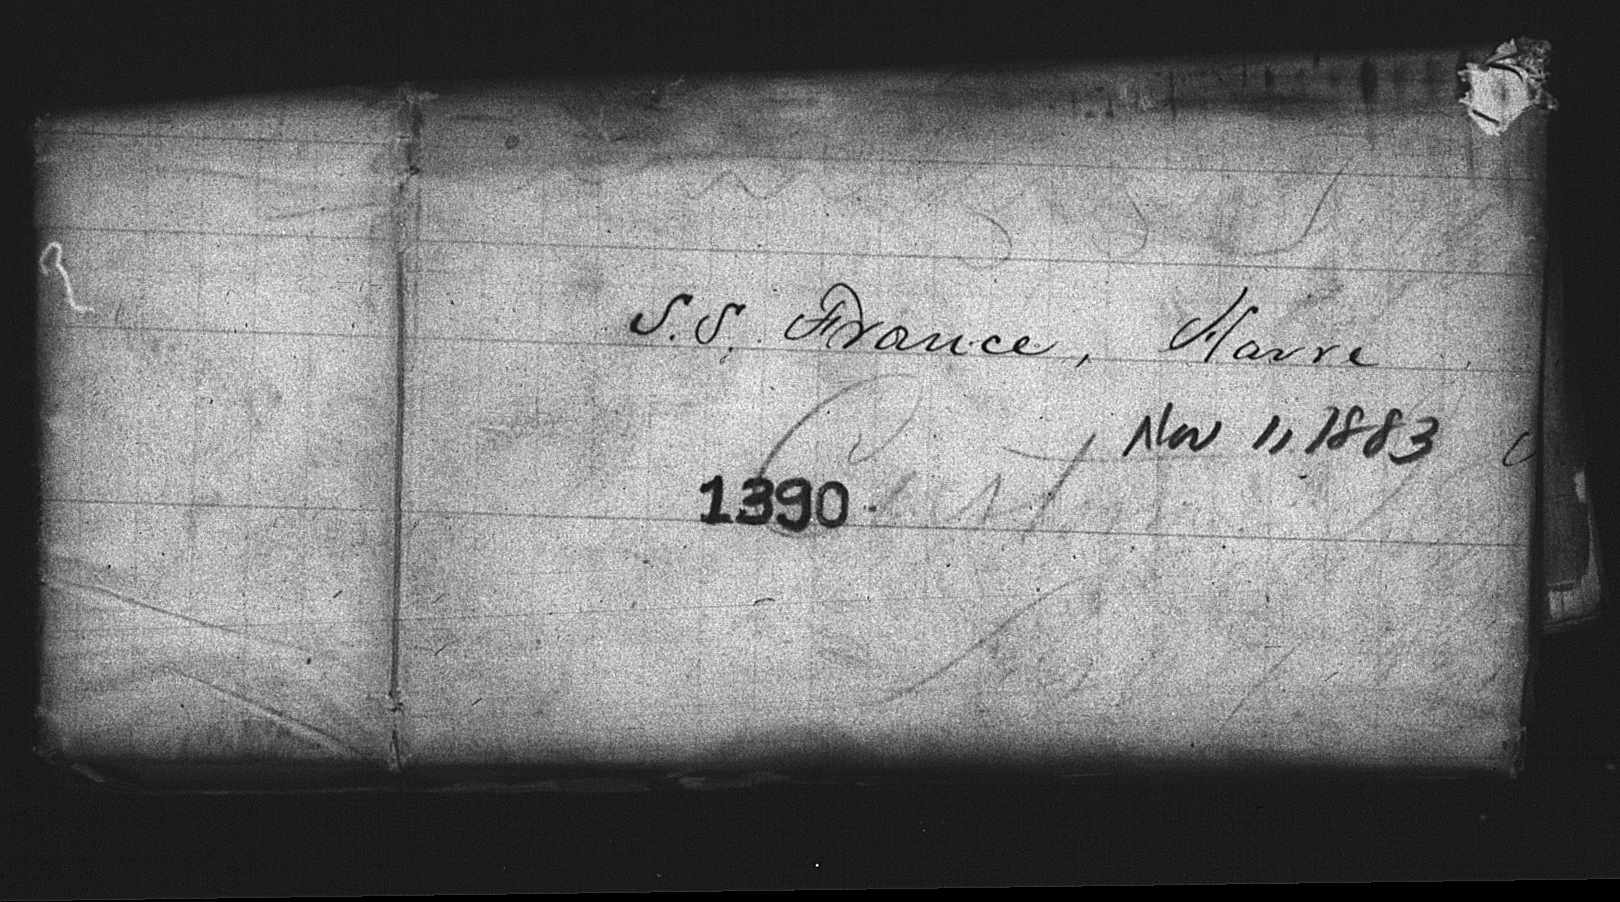 S.S. France, Havre
Nov 11, 1883
1390